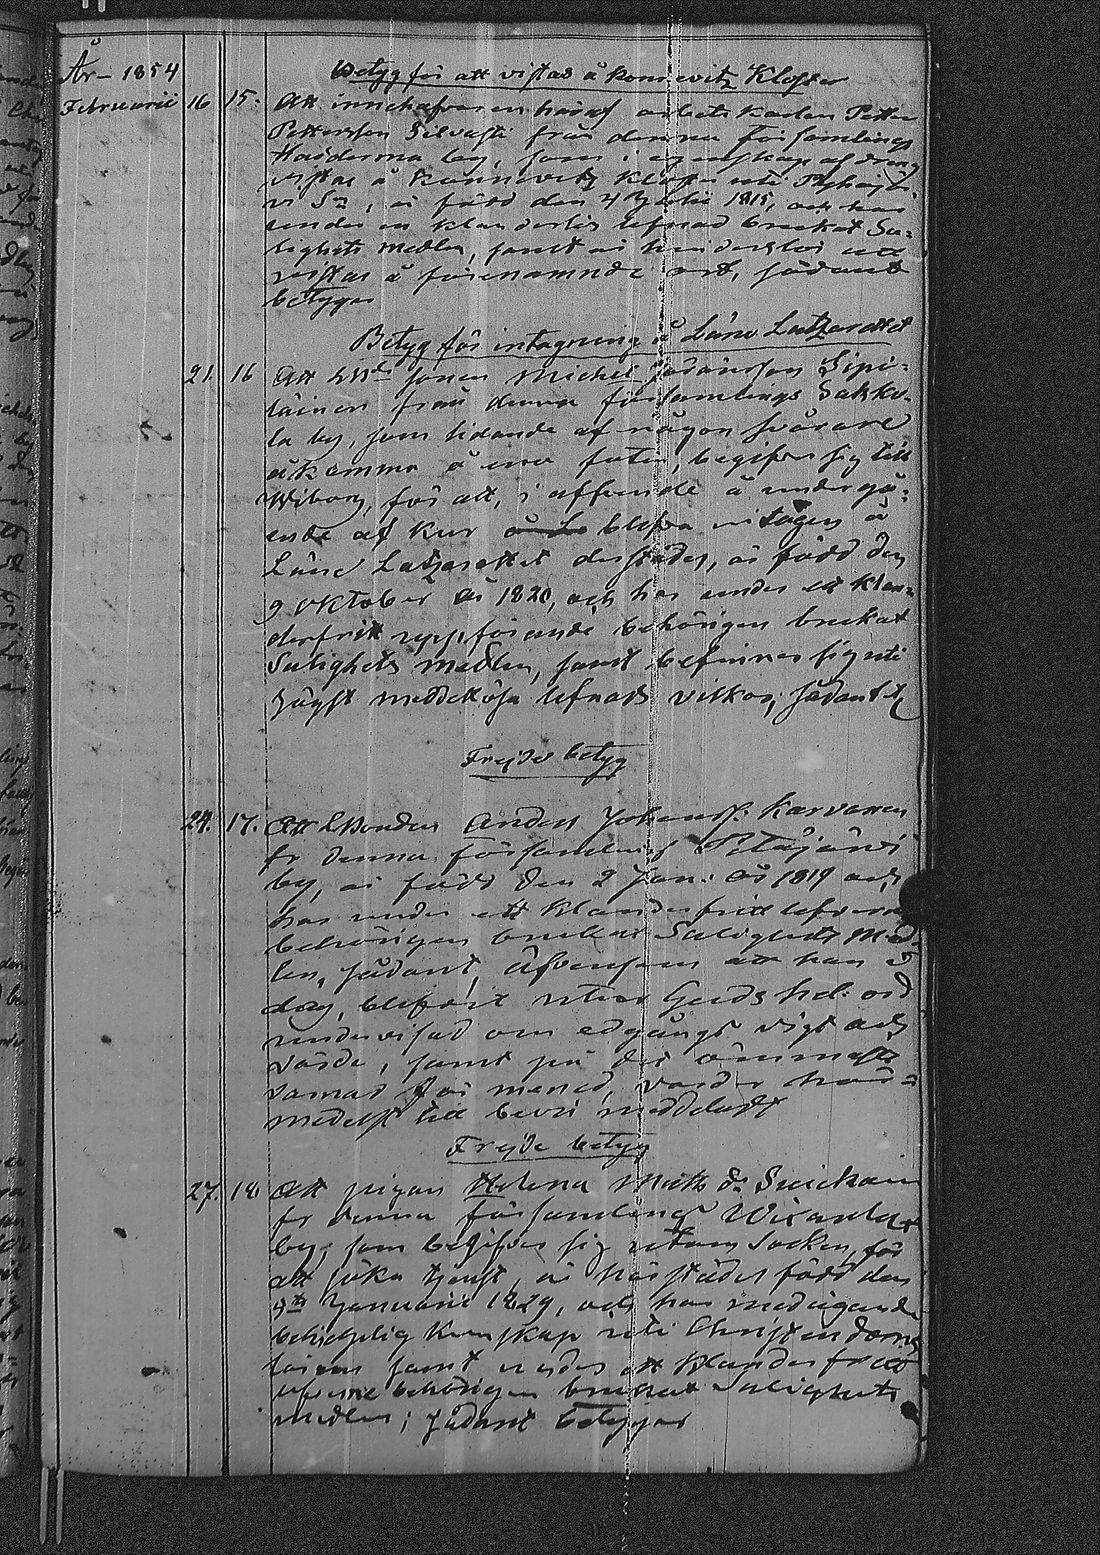 År 1854
Betyg för att vistas å Konnevitz Kloster
Februarii 16 15. Att innehafvaren häraf arbetskarlen Petter
Pettersson Silvasti från denna Församlings
by, som i egenskap af dräng
vistas å Konnevitz Kloster uti Pyhäjär-
vi Sn, är född den 4 Julii 1815, och har
under en klanderlös lefnad brukat Sa-
lighets medlen, samt är hinderslös att
vistas å förenämnde ort, sådant
betygas
Betyg för intagning å Läns Latzarettet
21. 16 Att sonen Michel Sipi-
läinen från denna församlings Sakko-
la by, som lidande af någon svårare
åkomma å ena foten, begifver sig till
Wiborg, för att, i afseende å undergå-
ende af kur blifva intagen å
Läns Latzarettet derstädes, är född den
9 Oktober år 1820, och har under ett klan-
derfritt uppförande behörigen brukat
Salighets medlen, samt befinner sig uti
högst medellösa lefnads vilkor; sådant
Frejde betyg
24. 17. Att Bonden Anders Johanss. Karvanen
fr denna församlings Petäjärvi
by, är född den 2 Jan: år 1819 och
har under ett klanderfritt lefverne
behörigen brukat Salighets Med-
len, sådant, äfvensom att han i
dag, blifvit utur Guds hel: ord
undervisad om edgångs vigt och
värde, samt på det ömmaste
varnad för mened, varder här-
medelst till bevis meddeladt
Frejde betyg
27. 18 Att pigan Helena Matts dr Suikain
fr denna församlings
by, som begifver sig utom Socken, för
att söka tjenst, är härstädes född den
4de Januarii 1829, och har medägande
behjelplig kunskap uti Christendoms
läran samt under ett klanderfritt
lefverne behörigen brukat Salighets
medlen; sådant betygas